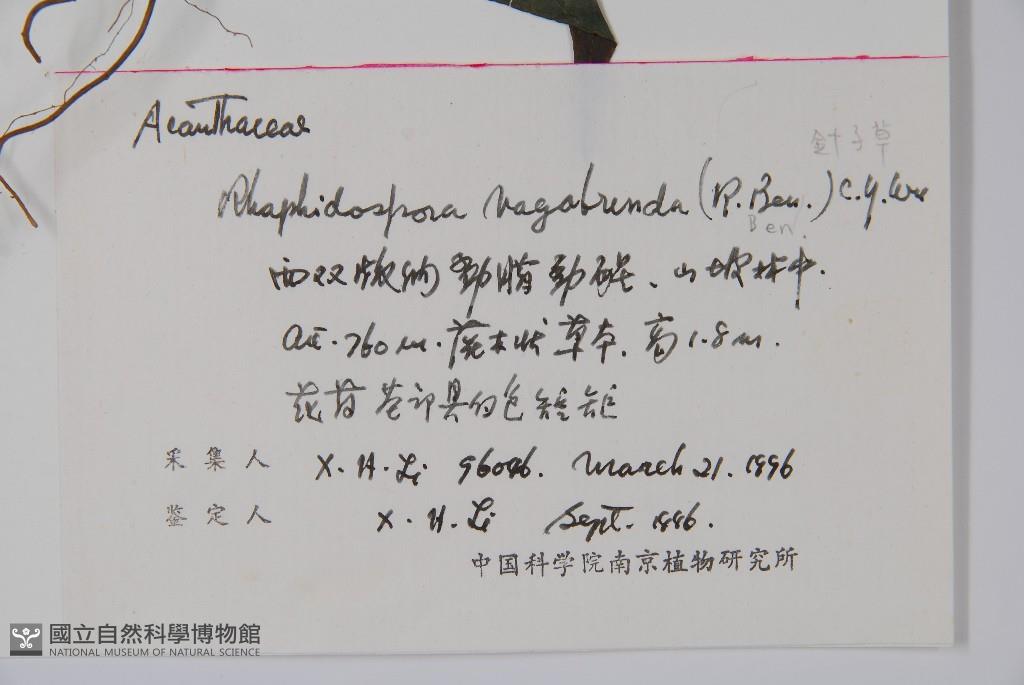 Acanthaceae
針子草
Rhaphidospora vagabunda (R. Ben.) C.Y. Wu
Ben.
西双版纳 勐腊 勐 、山坡林中.
alt. 760 m. 灌木状草本. 高1.8 m.
花药基部具白色短距
采集人 X. H. Li 96046. March 21. 1996
鉴定人 X. H. Li Sept. 1996.
中国科学院南京植物研究所
國立自然科學博物館
NATIONAL MUSEUM OF NATURAL SCIENCE